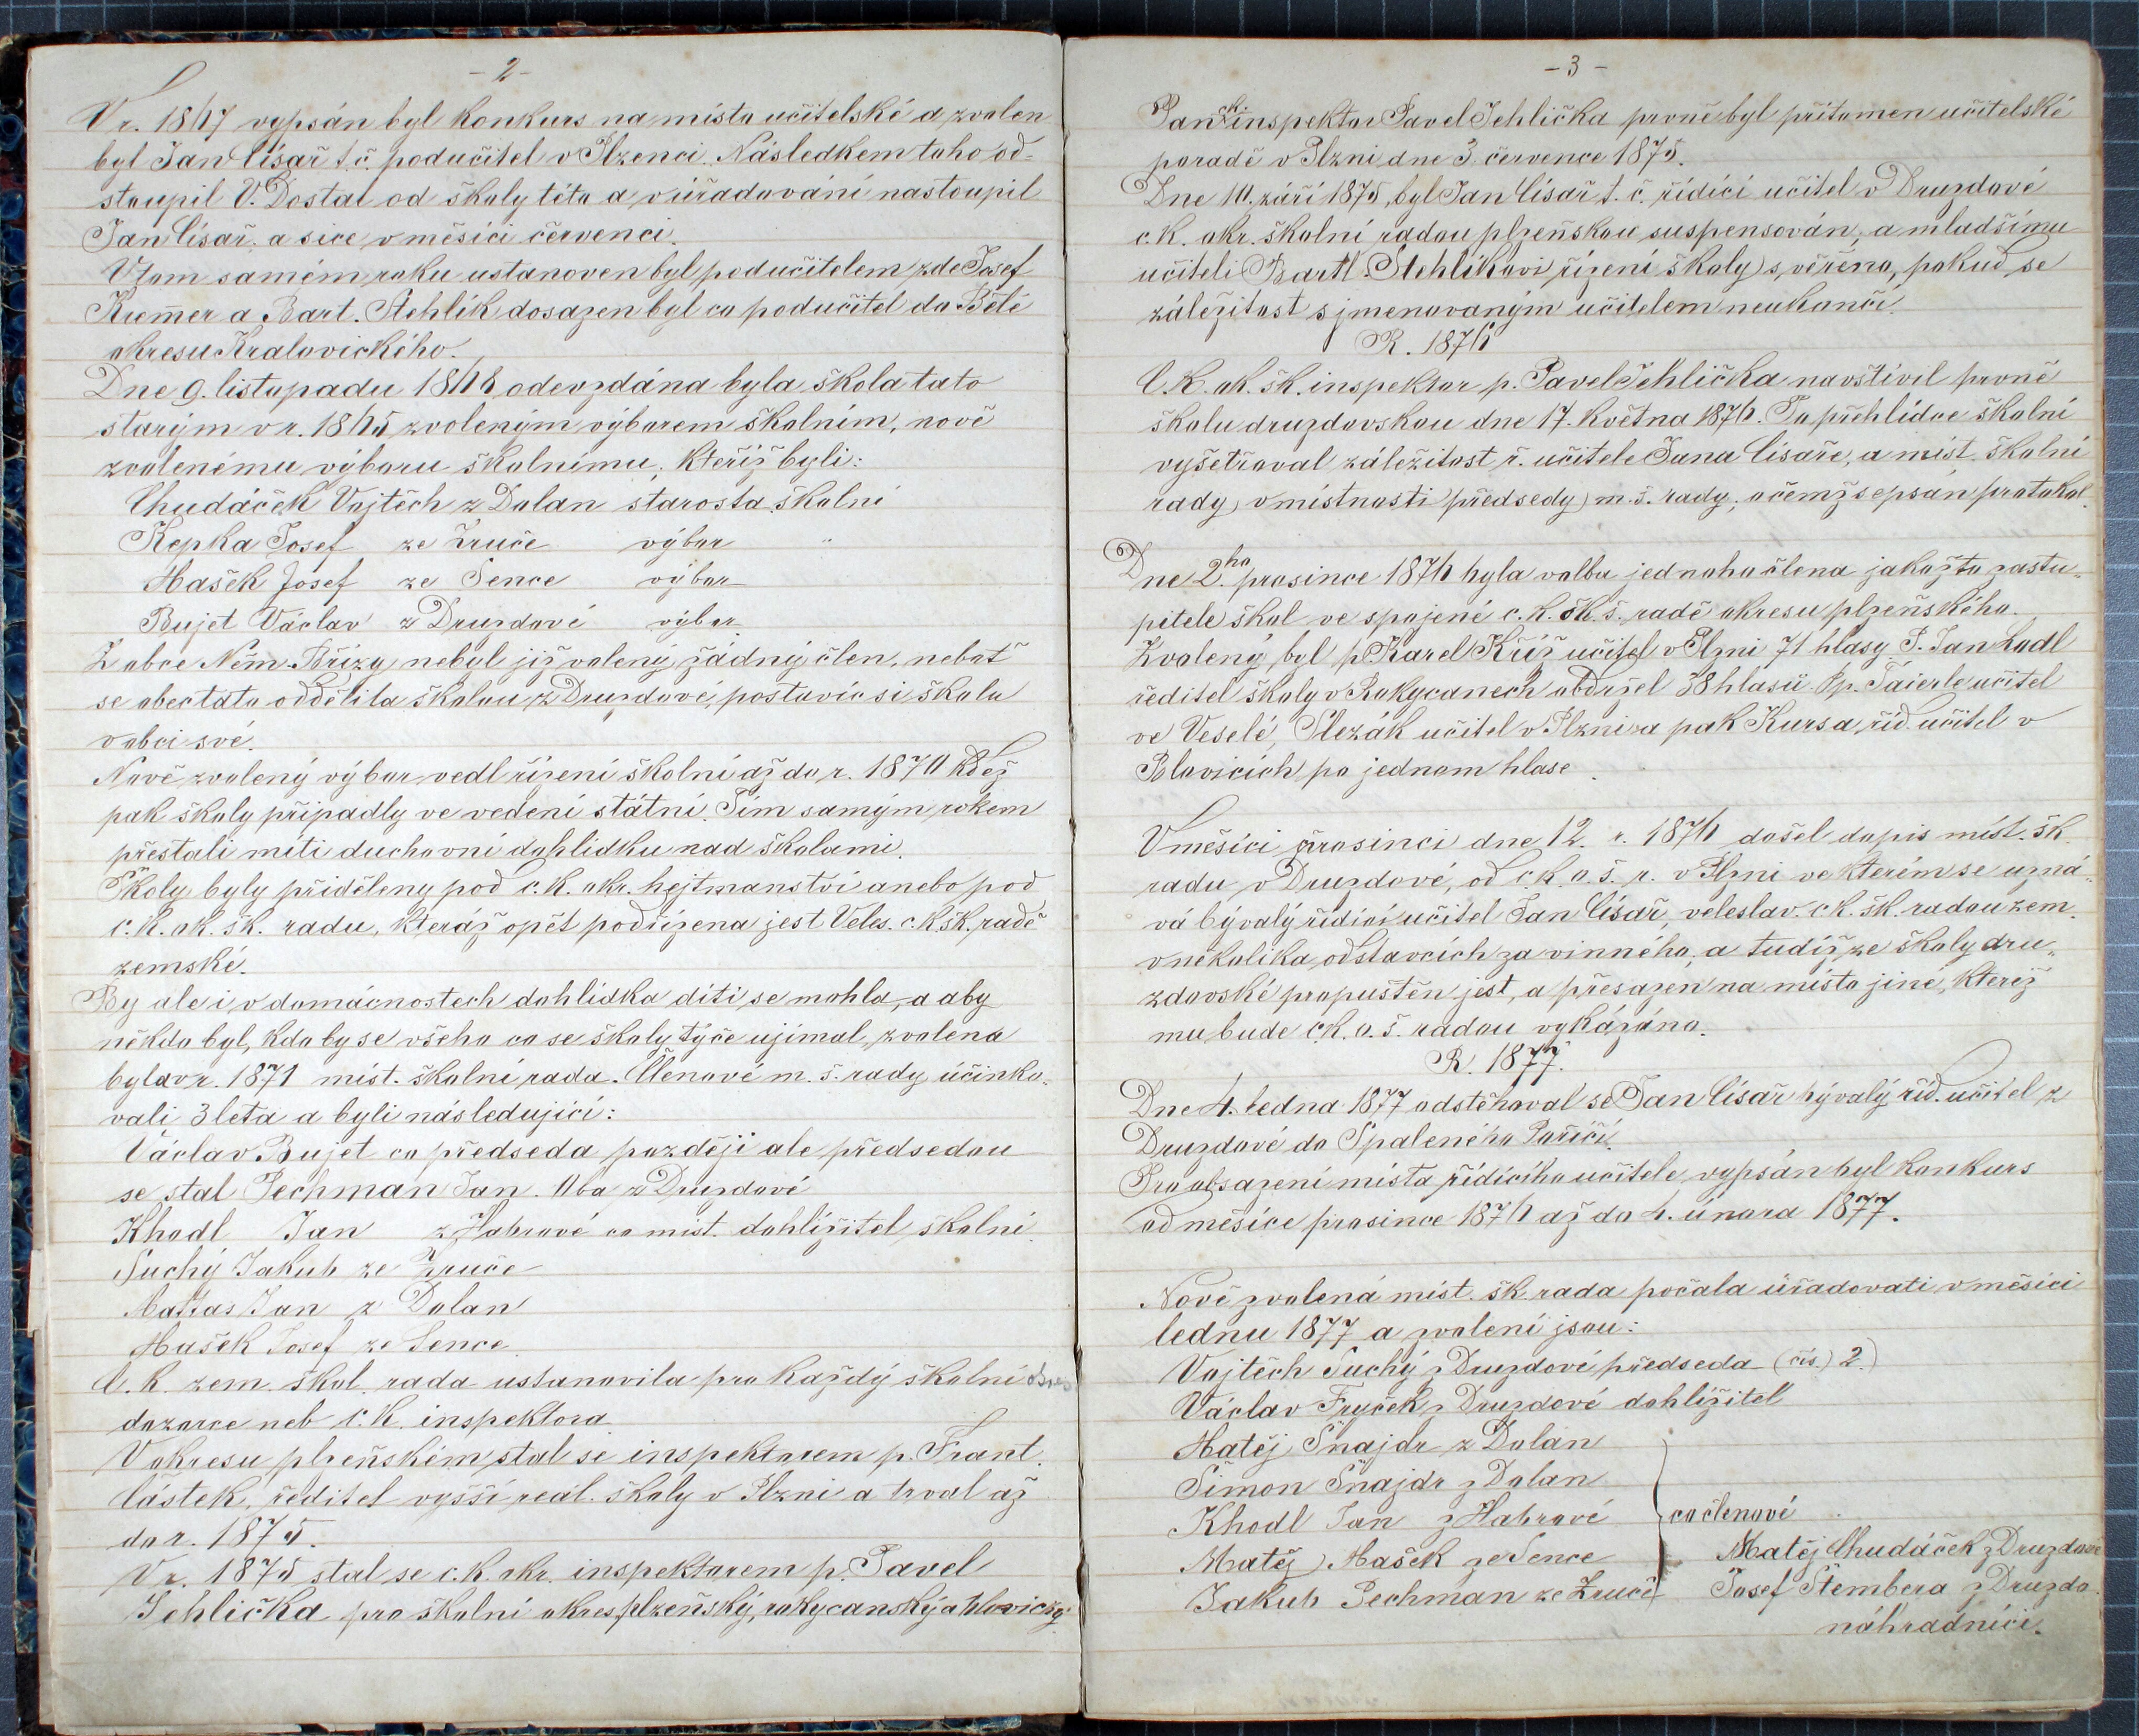 - 2 -
V r. 1867 vypsán byl konkurs na místo učitelské a zvolen
byl Jan Císař t. č. podučitel v Plzenci. Následkem toho od=
stoupil V. Dostal od školy této a v úřadování nastoupil
Jan Císař. a sice v měsíci červenci.
V tom samém roku ustanoven byl podučitelem zde Josef
Kremer a Bart. Stehlík dosazen byl co podučitel do Bělé
okresu Kralovického.
Dne 9. listopadu 1868 odevzdána byla škola tato
starým v r. 1865 zvoleným výborem školním, nově
zvolenému výboru školnímu, kteříž byli:
Chudáček Vojtěch z Dolan starosta školní
Kepka Josef ze Zruče výbor "
Hašek Josef ze Sence výbor
Bujet Václav z Druzdové výbor
Z obce Něm. Břízy nebyl již volený žádný člen, neboť
se obec tato oddělila školou z Druzdové, postavíc si školu
v obci své.
Nově zvolený výbor vedl řízení školní až do r. 1870 kdež
pak školy připadly ve vedení státní. Tím samým rokem
přestali míti duchovní dohlídku nad školami.
Školy byly přiděleny pod c. k. okr. hejtmanství anebo pod
c. k. ok. šk. radu, kteráž opět podřízena jest Veles. c. k. šk. radě
zemské.
By ale i v domácnostech dohlídka díti se mohla, a aby
někdo byl, kdo by se všeho co se školy týče ujímal, zvolena
byla v r. 1871 míst. školní rada. Členové m. š. rady účinko=
vali 3 leta a byli následující:
Václav Bujet co předseda později ale předsedou
se stal Pechman Jan. Oba z Druzdové
Khodl Jan z Habrové co míst. dohlížitel školní.
Suchý Jakub ze Zruče
Matras Jan z Dolan
Hašek Josef ze Sence.
C. k. zem. škol. rada ustanovila pro každý školní okres
dozorce neb c. k. inspektora.
V okresu plzeňském stal se inspektorem p. Frant.
Částek, ředitel vyšší reál. školy v Plzni a trval až
do r. 1875.
V r. 1875 stal se c. k. okr. inspektorem p. Pavel
Jehlička pro školní okres plzeňský, rokycanský a blovický.
- 3 -
Pan ck. inspektor Pavel Jehlička prvně byl přítomen učitelské
poradě v Plzni dne 3. července 1875.
Dne 10. září 1875, byl Jan Císař t. č. řídící učitel v Druzdové
c. k. okr. školní radou plzeňskou suspensován, a mladšímu
učiteli Bartl. Stehlíkovi řízení školy svěřeno, pokud se
záležitost s jmenovaným učitelem neukončí.
R. 1876
C. k. ok. šk. inspektor p. Pavel Jehlička navštívil prvně
školu druzdovskou dne 17. května 1876. Po přehlídce školní
vyšetřoval záležitost ř. učitele Jana Císaře, a míst. školní
rady v místnosti předsedy m. š. rady, o čemž sepsán protokol.
Dne 2.ho prosince 1876 byla volba jednoho člena jakožto zastu=
pitele škol ve spojené c. k. ok. š. radě okresu plzeňského.
Zvolený byl p. Karel Kříž učitel v Plzni 71 hlasy P. Jan Lodl
ředitel školy v Rokycanech obdržel 58 hlasů. P. p. Šaierle učitel
ve Veselé, Slezák učitel v Plzni a pak Kursa říd. učitel v
Blovicích po jednom hlase.
V měsíci prosinci dne 12. r. 1876 došel dopis míst. šk.
radu v Druzdové, od c. k. o. š. r. v Plzni ve kterém se uzná=
vá bývalý řídící učitel Jan Císař, veleslav. c k. šk. radou zem.
v několika odstavcích za vinného, a tudíž ze školy dru=
zdovské propuštěn jest, a přesazen na místo jiné, kteréž
mu bude c. k. o. š. radou vykázáno.
R. 1877.
Dne 4. ledna 1877 odstěhoval se Jan Císař bývalý říd. učitel z
Druzdové do Spáleného Poříčí.
Pro obsazení místa řídícího učitele vypsán byl konkurs
od měsíce prosince 1876 až do 4. února 1877.
Nově zvolená míst. šk. rada počala úřadovati v měsíci
lednu 1877 a zvolení jsou:
Vojtěch Suchý z Druzdové předseda (čís.) 2.)
Václav Fryček z Druzdové dohlížitel
Matěj Šnajdr z Dolan
Šimon Šnajdr z Dolan
Khodl Jan z Habrové co členové
Matěj Hašek ze Sence Matěj Chudáček z Druzdové
Jakub Pechman ze Zruče Josef Štembera z Druzdo.
náhradníci.